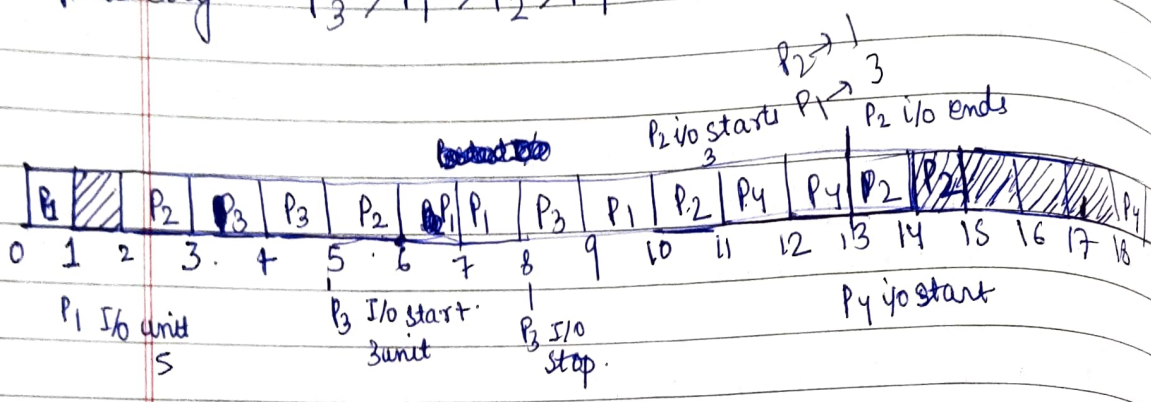 P3 > P1 > P2 > P4
P2 → 1
P1 → 3
P2 i/o starts
3
P2 i/o ends
P1 P2 P3 P3 P2 P1 P1 P3 P1 P2 P4 P4 P2 P2 P4
0 1 2 3 4 5 6 7 8 9 10 11 12 13 14 15 16 17 18
P1 I/o unit
5
P3 I/o start
3unit
P3 I/O
stop.
P4 i/o start